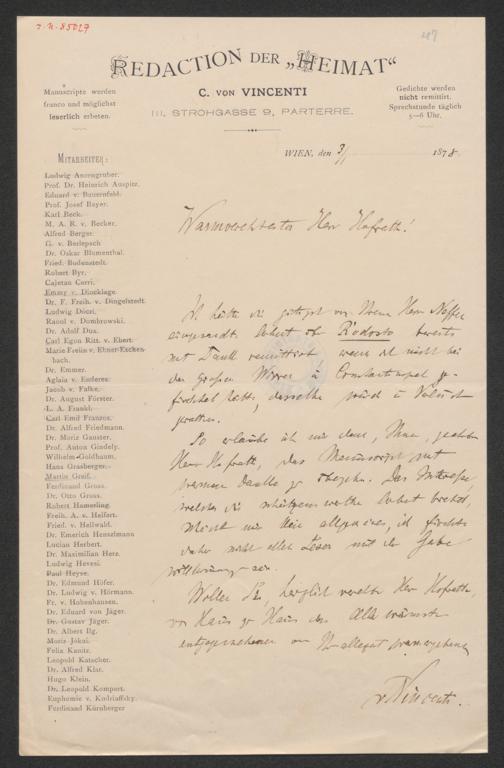 I.N. 85027
47
REDACTION DER „HEIMAT“
C. VON VINCENTI
III. STROHGASSE 9, PARTERRE.
Manuscripte werden
franco und möglichst
leserlich erbeten.
Gedichte werden
nicht remittirt.
Sprechstunde täglich
5—6 Uhr.
WIEN, den 3/ 1878.
MITARBEITER:
Ludwig Anzengruber.
Prof. Dr. Heinrich Auspitz.
Eduard v. Bauernfeld.
Prof. Josef Bayer.
Karl Beck.
M. A. R. v. Becker.
Alfred Berger.
G. v. Berlepsch
Dr. Oskar Blumenthal.
Fried. Bodenstedt.
Robert Byr.
Cajetan Cerri.
Emmy v. Dincklage.
Dr. F. Freih. v. Dingelstedt.
Ludwig Dóczi.
Raoul v. Dombrowski.
Dr. Adolf Dux.
Carl Egon Ritt. v. Ebert.
Marie Freiin v. Ebner-Eschen-
bach.
Dr. Emmer.
Aglaia v. Enderes.
Jacob v. Falke.
Dr. August Förster.
L. A. Frankl.
Carl Emil Franzos.
Dr. Alfred Friedmann.
Dr. Moriz Gauster.
Prof. Anton Gindely.
Wilhelm Goldbaum.
Hans Grasberger.
Martin Greif.
Ferdinand Gross.
Dr. Otto Gross.
Robert Hamerling.
Freih. A. v. Helfert.
Fried. v. Hellwald.
Dr. Emerich Henselmann
Lucian Herbert.
Dr. Maximilian Herz.
Ludwig Hevesi.
Paul Heyse.
Dr. Edmund Höfer.
Dr. Ludwig v. Hörmann.
Fr. v. Hohenhausen.
Dr. Eduard von Jäger.
Dr. Gustav Jäger.
Dr. Albert Ilg.
Moriz Jókai.
Felix Kanitz.
Leopold Katscher.
Dr. Alfred Klar.
Hugo Klein.
Dr. Leopold Kompert.
Euphemie v. Kudriaffsky.
Ferdinand Kürnberger
Warmverehrtester Herr Hofrath!
Ich hätte die gütigst von Ihrem Herrn Neffen
eingesandte Arbeit über Rodosto bereits
mit Dank remittirt wenn ich nicht bei
den großen Wirren in Constantinopel ge-
fürchtet hätte, dieselbe würde in Verlust
gerathen.
So erlaube ich mir denn, Ihnen, geehrter
Herr Hofrath, das Manuscript mit
warmem Danke zu übergeben. Das Interesse,
welches die schätzenswerthe Arbeit bietet,
scheint mir kein allgemeines, ich fürchte
daher nicht allen Lesern mit der Gabe
willkommen zu sein.
Wollen Sie, herzlich verehrter Herr Hofrath,
von Haus zu Haus das Allerwärmste
entgegennehmen von Ihrem
v. Vincenti.